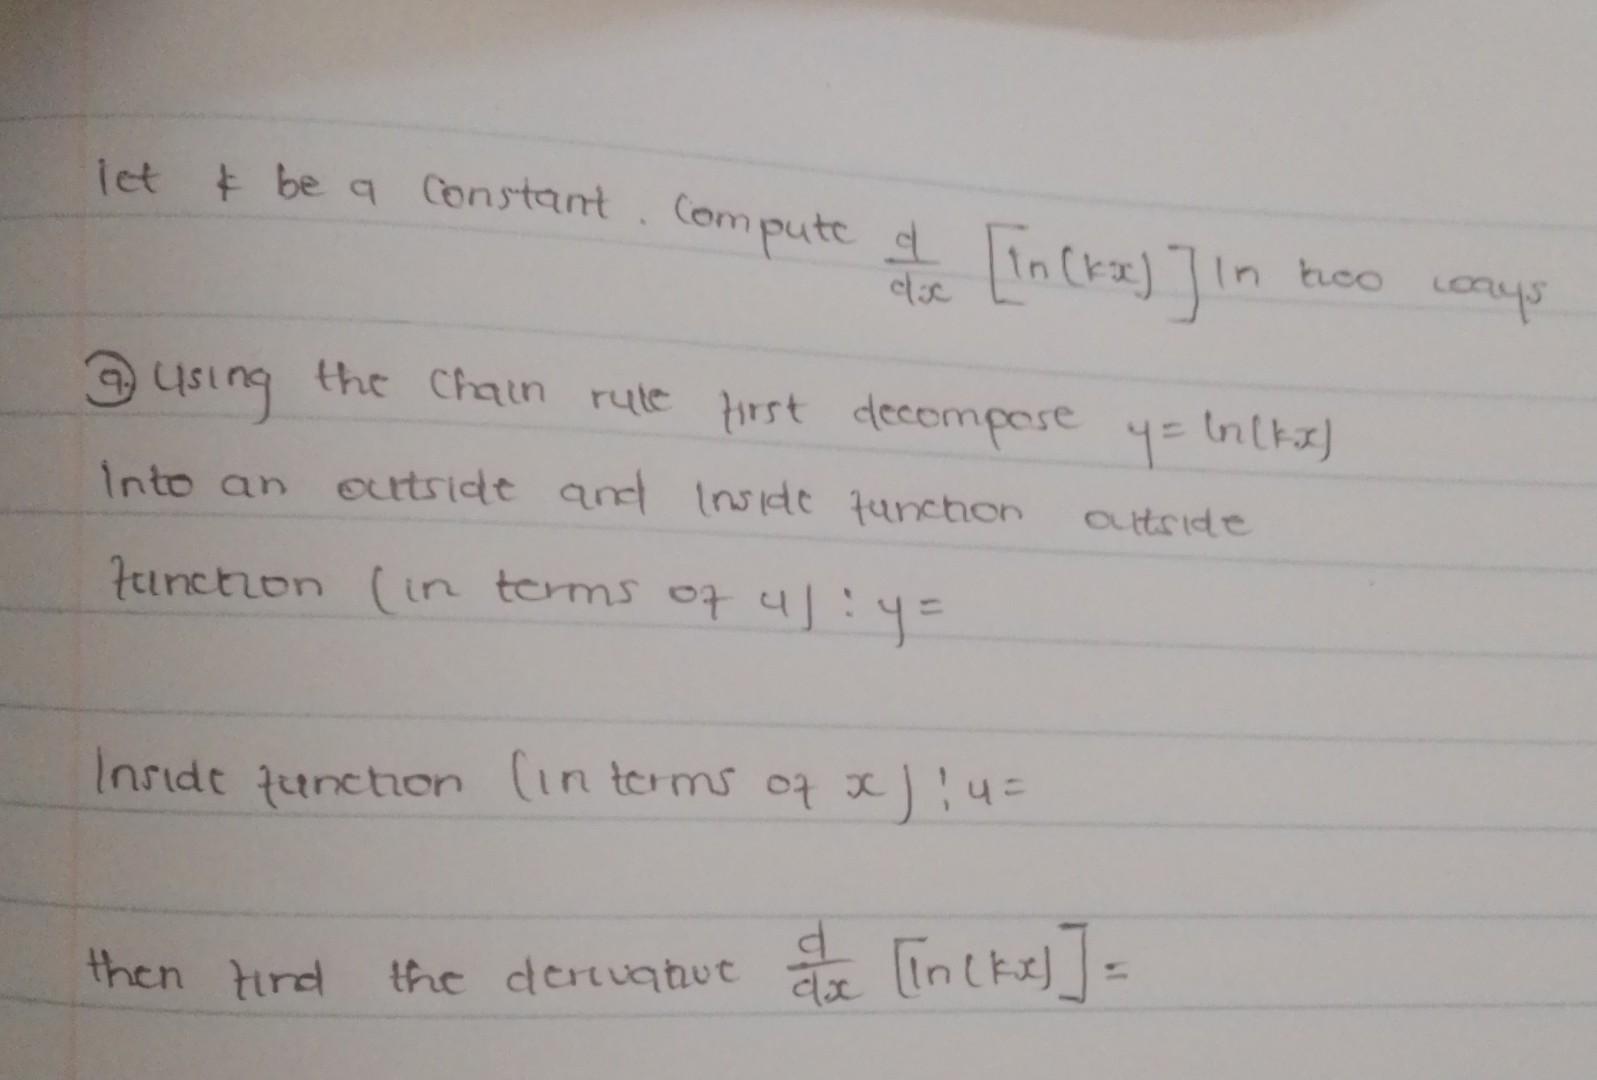 let k be a constant. Compute d/dx [ln(kx)] In two ways
(a.) Using the chain rule first decompose y = ln(kx)
Into an outside and Inside function outside
function (in terms of u) : y =
Inside function (in terms of x) : u =
then find the derivative d/dx [ln(kx)] =